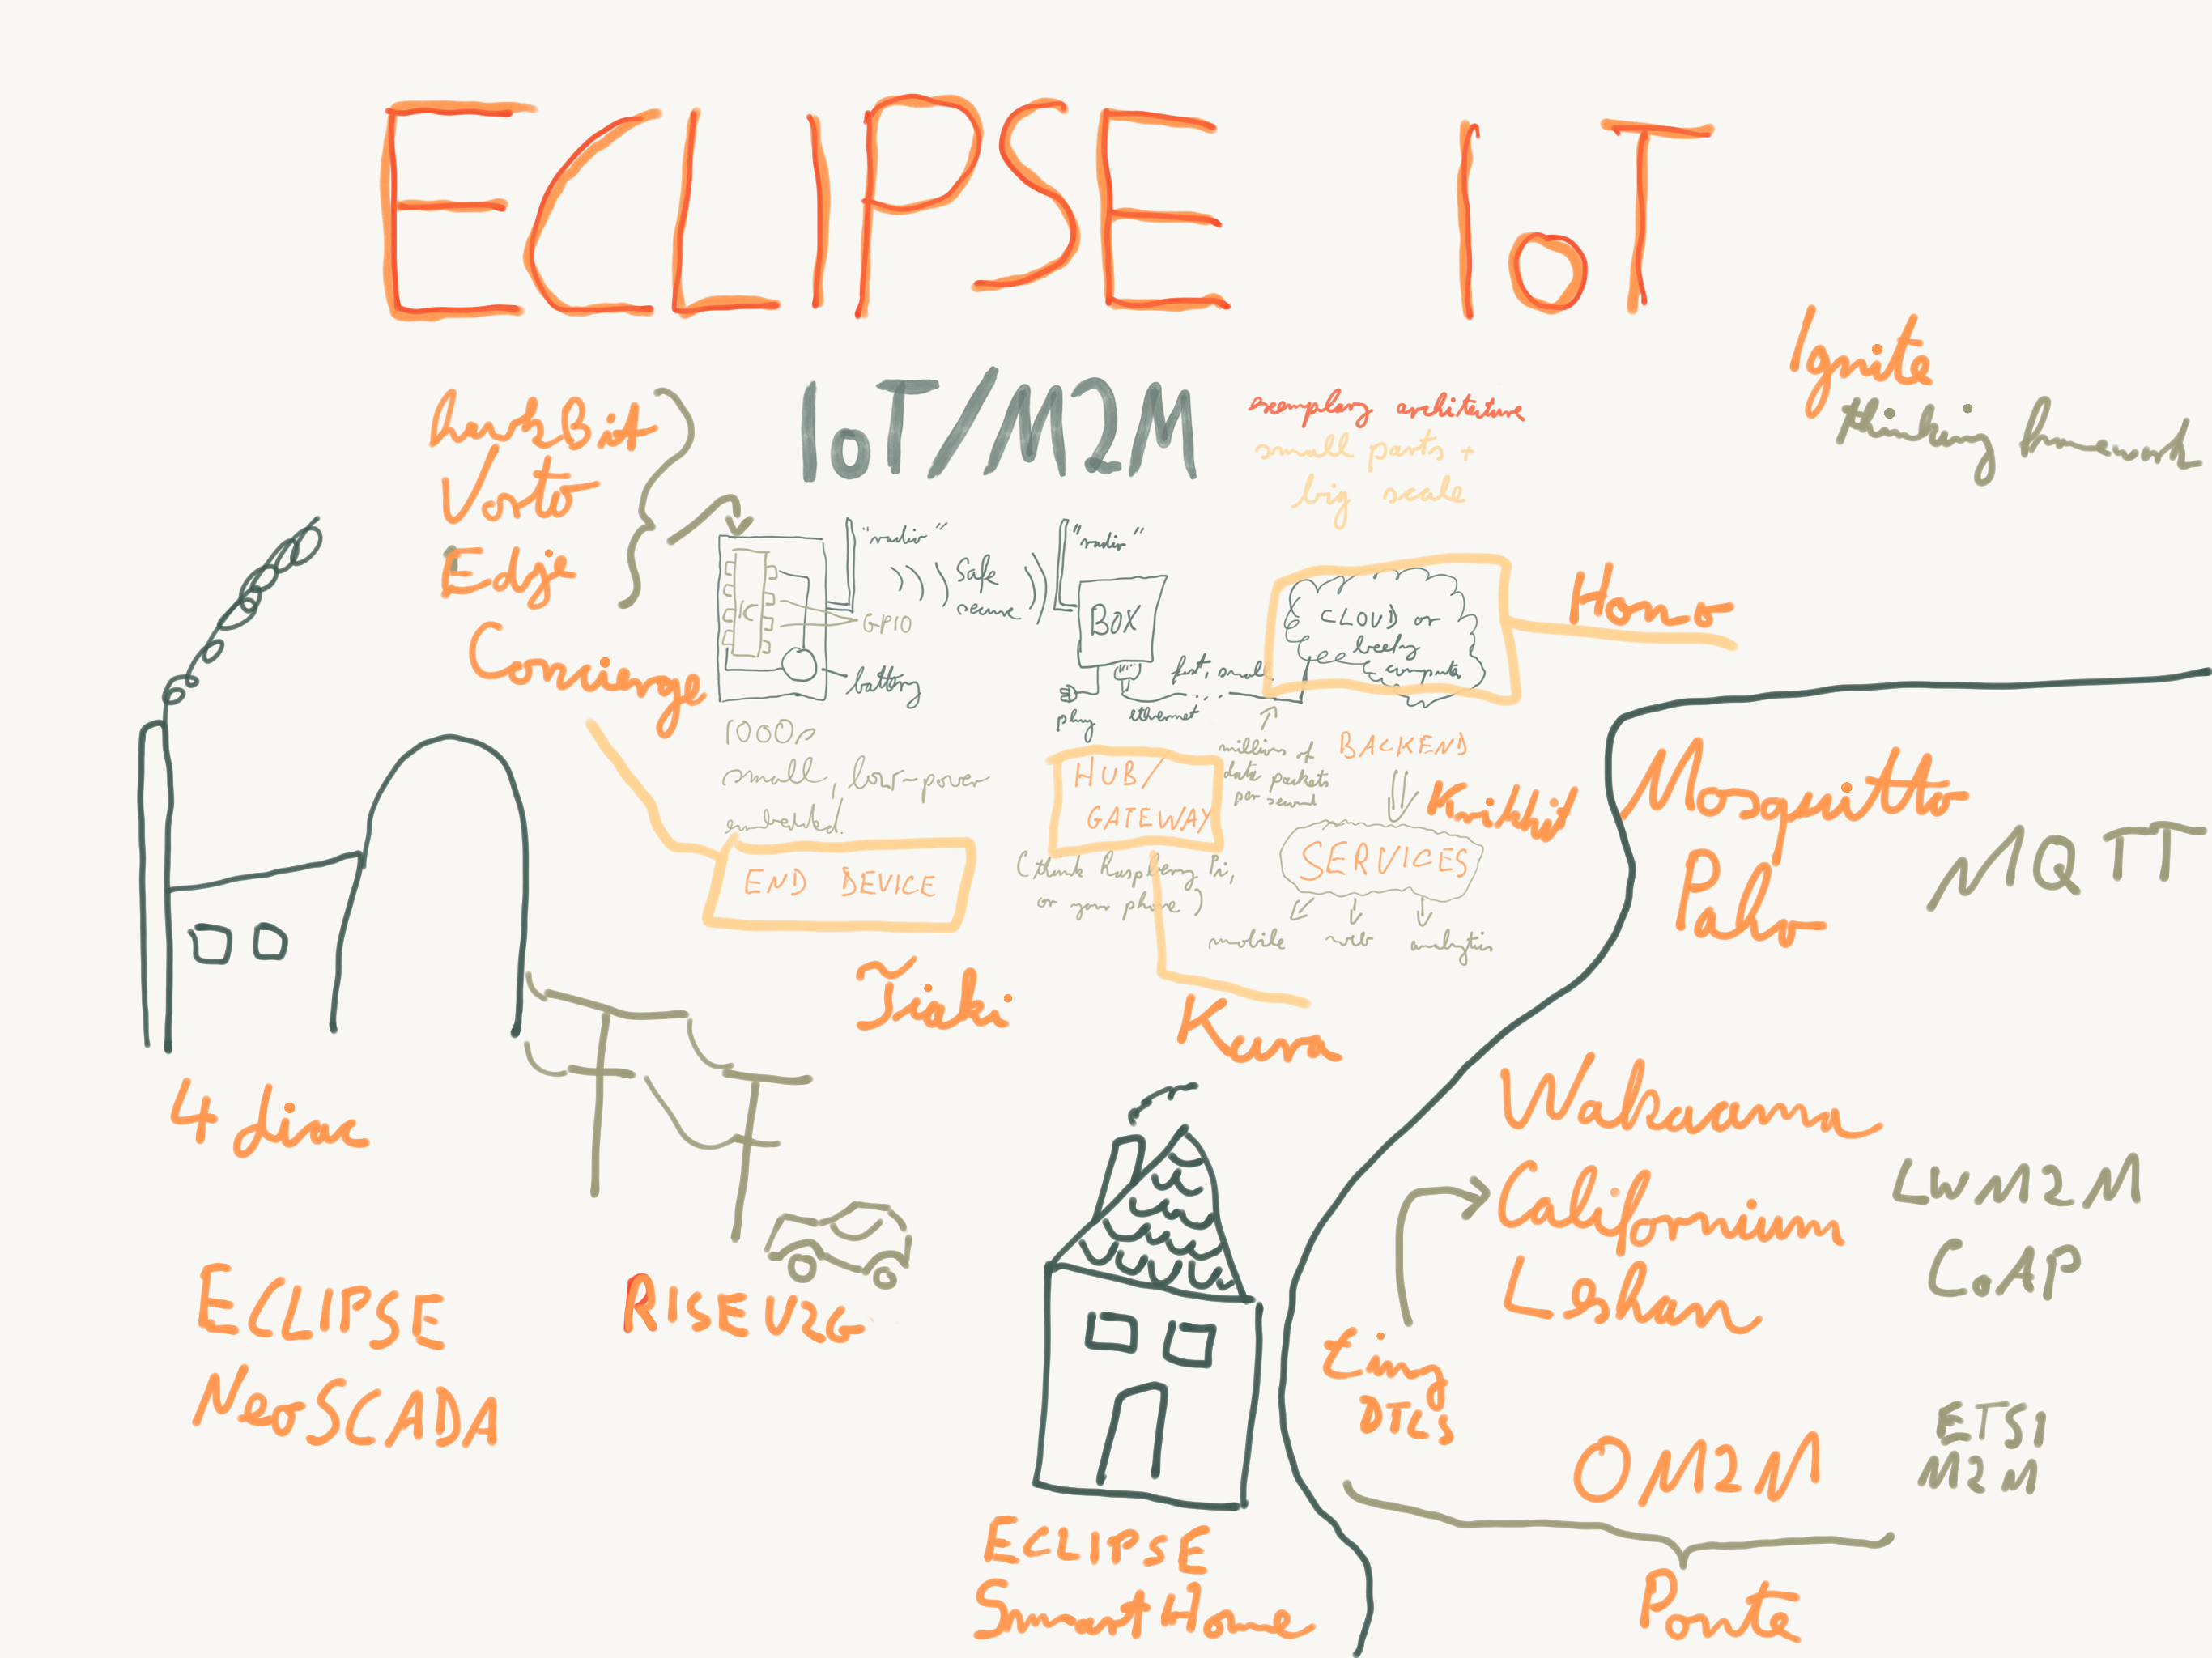 ECLIPSE IoT
Ignite
thinking framework
IoT/M2M
exemplary architecture
small parts +
big scale
hawkBit
Vorto
Edje
Concierge
"radio"
IC
GPIO
battery
Safe
secure
"radio"
BOX
plug
ethernet
fast, small
CLOUD or
beefy
computer
Hono
1000s
small, low-power
embedded.
END DEVICE
HUB/
GATEWAY
(think Raspberry Pi,
or your phone)
millions of
data packets
per second
BACKEND
Krikkit
SERVICES
mobile
web
analytics
Tiaki
Kura
Mosquitto
Paho
MQTT
4diac
ECLIPSE
NeoSCADA
RISE V2G
ECLIPSE
SmartHome
Wakaama
Californium
Leshan
LWM2M
CoAP
tiny
DTLS
OM2M
ETSI
M2M
Ponte